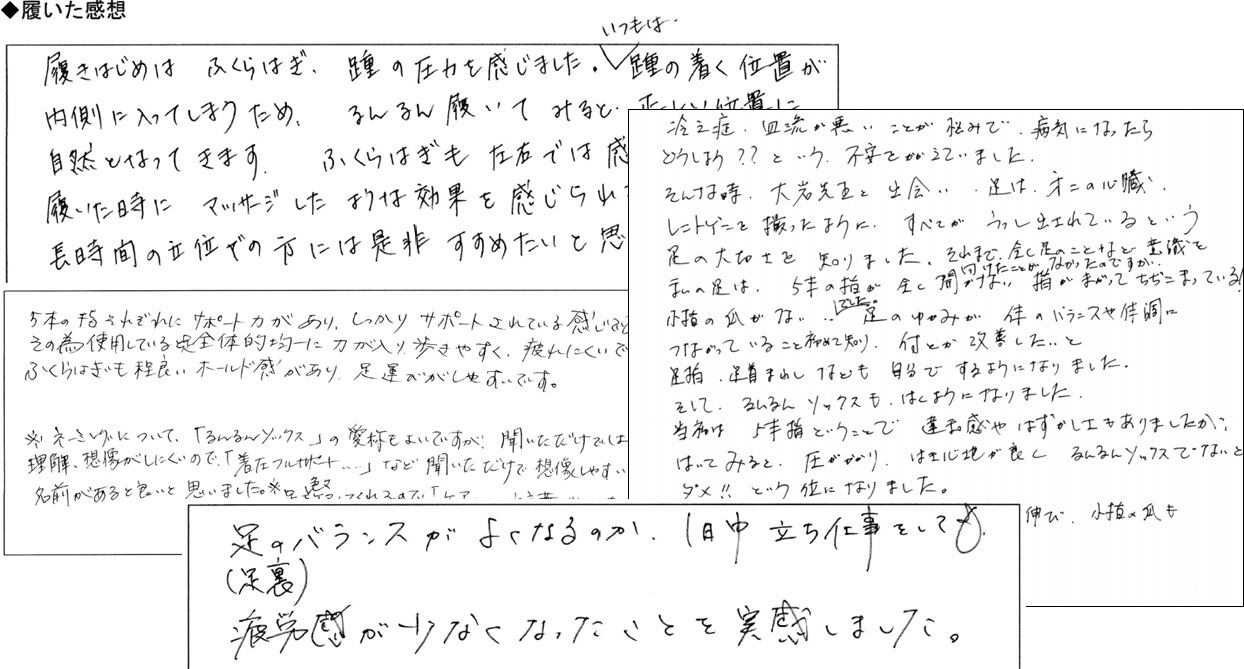 ◆履いた感想
いつもは
履きはじめは ふくらはぎ、踵の圧力を感じました。踵の着く位置が
内側に入ってしまうため、るんるん履いてみると、正しい位置に
自然となってきます。ふくらはぎも左右では感
履いた時に マッサージしたような効果を感じられ
長時間の立位での方には是非すすめたいと思
5本の指それぞれにサポート力があり、しっかりサポートされている感じ
その為使用している足全体的均一に力が入り歩きやすく、疲れにくいで
ふくらはぎも程良いホールド感があり、足運びがしやすいです。
※ネーミングについて、「るんるんソックス」の愛称もよいですが、聞いただけでは
理解、想像がしにくいので、「着圧フルサポート…」など聞いただけで想像しやすい
名前があると良いと思いました。※
冷え症、血流が悪いことが悩みで、病気になったら
どうしよう??という、不安をかかえていました。
そんな時、大岩先生と出会い、足は、第二の心臓、
レントゲンを撮ったように、すべてが うつし出されているという
足の大切さを知りました。それまで、全く足のことなど意識を
向けたことがなかったのですが、
私の足は、5本の指が全く開かない 指がまがってちぢこまっている!
小指の爪がない‥でした。足のゆがみが 体のバランスや体調に
つながっていること初めて知り、何とか改善したいと
足指、足首まわしなども 自分でするようになりました。
そして、るんるんソックスも、はくようになりました。
当初は 5本指ということで 違和感やはずかしさもありましたが、
はいてみると、圧がかかり、はき心地が良く るんるんソックスでないと
ダメ!!という位になりました。
伸び、小指の爪も
足のバランスがよくなるのか、1日中 立ち仕事をしても、
(足裏)
疲労感が少なくなったことを実感しました。